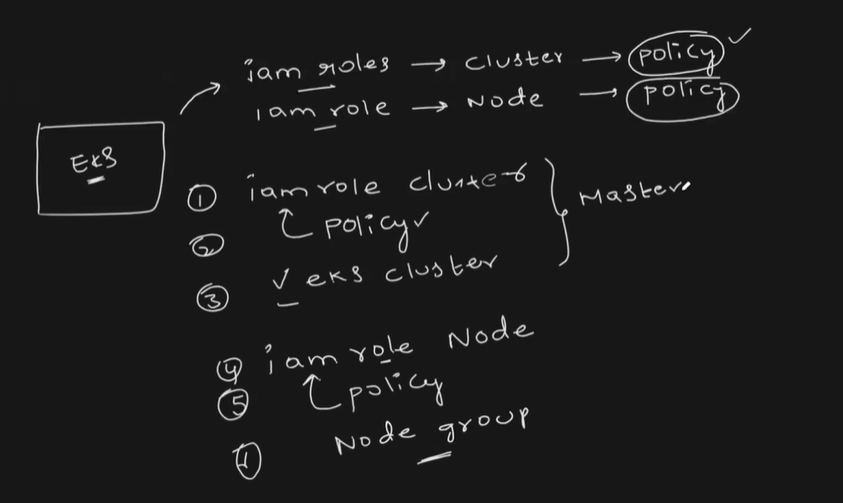 iam roles → cluster → policy ✓
iam role → Node → policy
EKS
① iam role cluster
② policy ✓
Master
③ ✓ eks cluster
④ iam role Node
⑤ policy
Node group